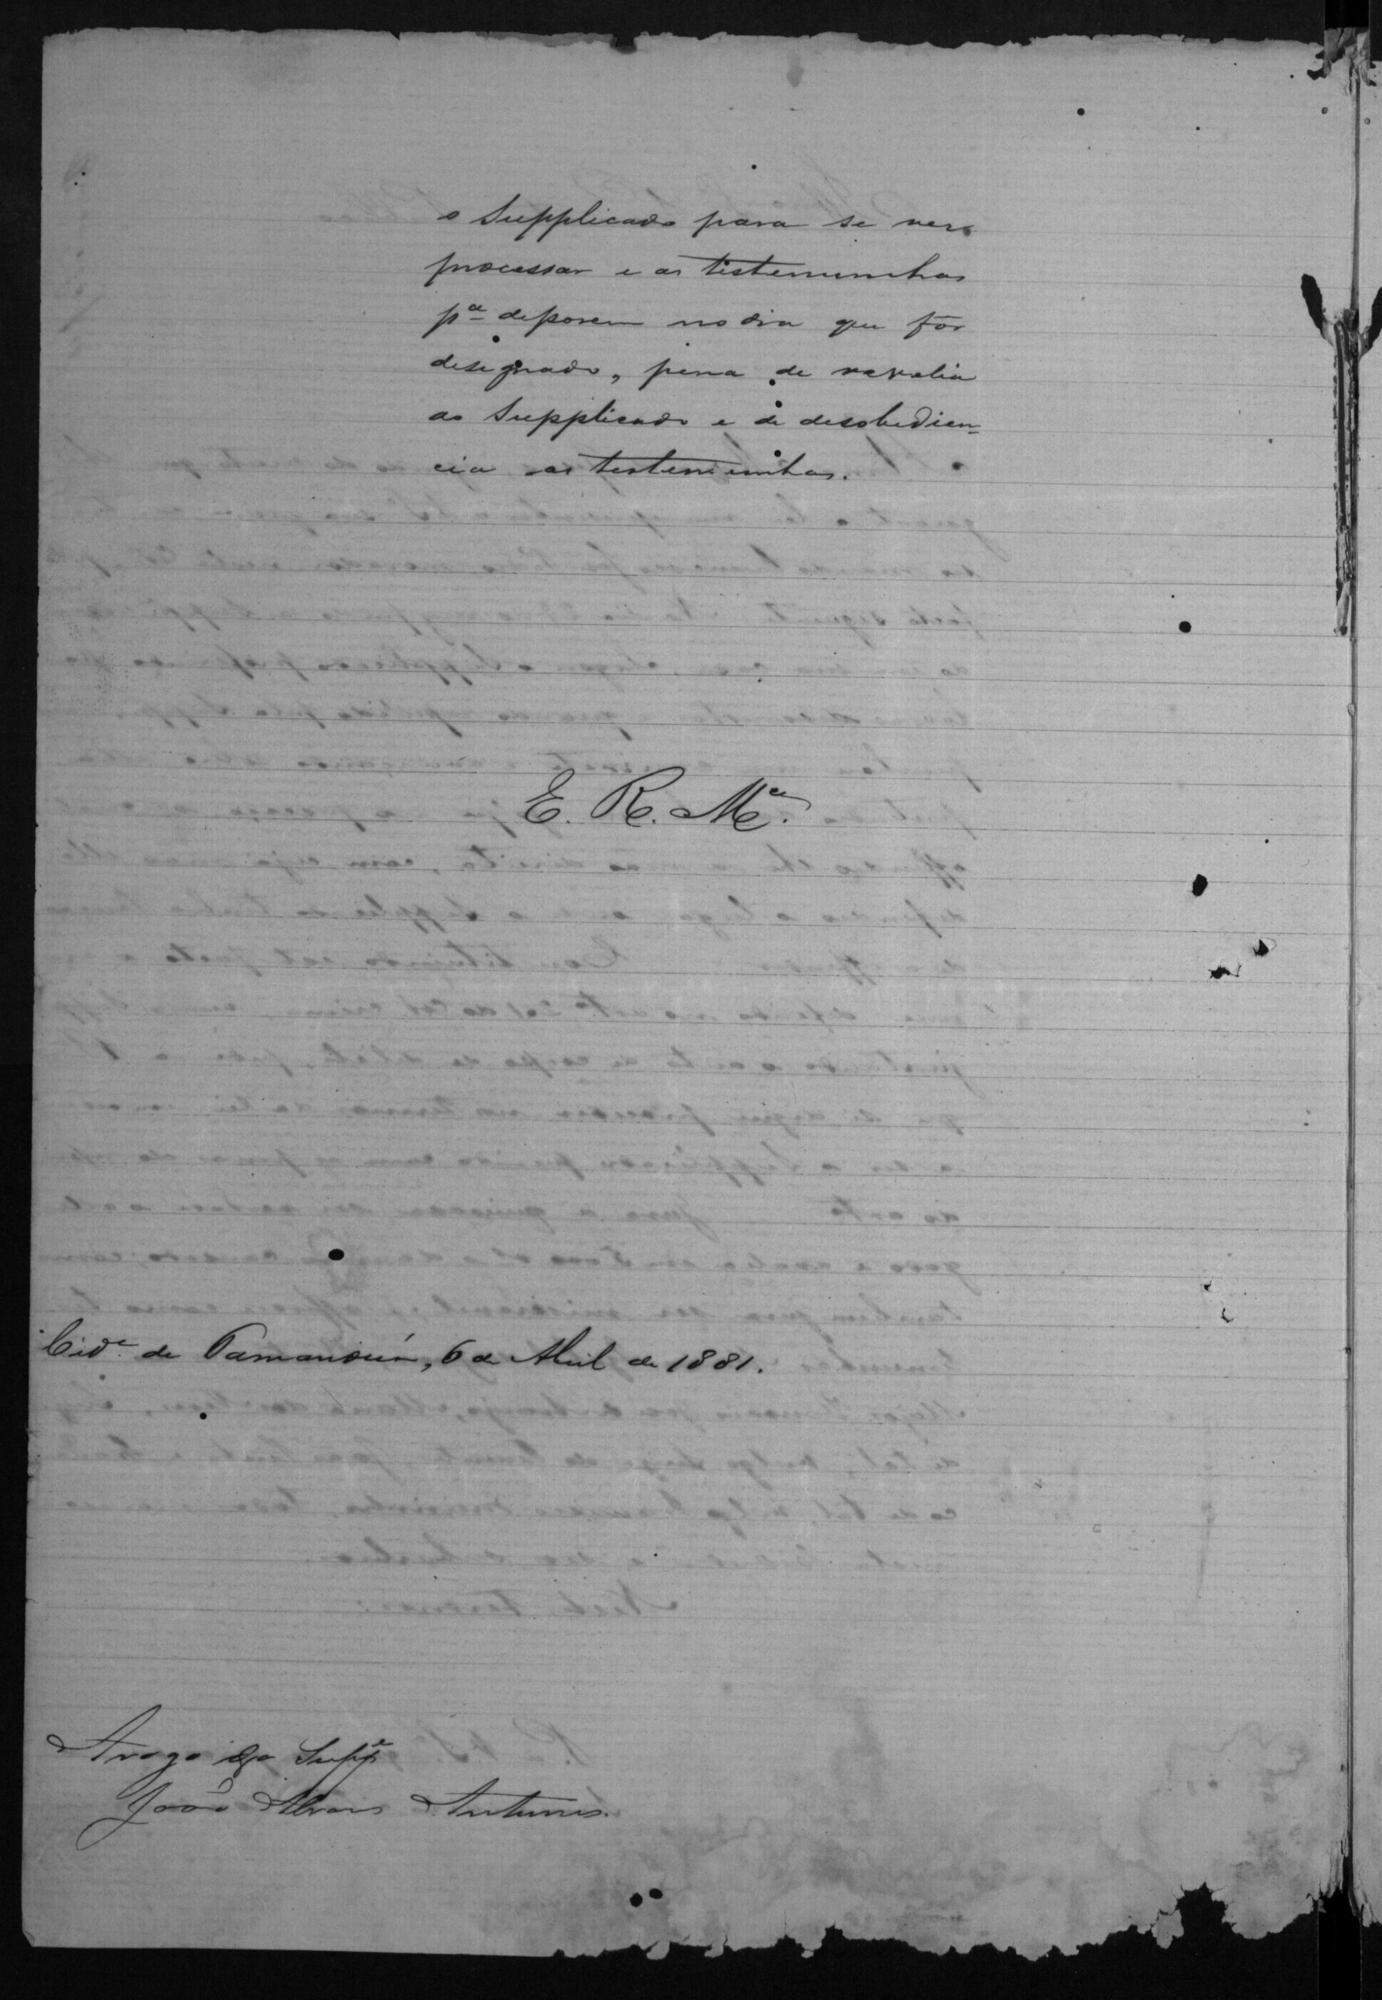 o Supplicado para se ver
processar e as testemunhas
pª deporem no dia que fôr
designado, pena de revelia
ao Supplicado e de desobedien=
cia as testemunhas.
E. R. Mce.
Cide. de Tamanduá, 6 de Abril de 1881.
Arogo do Suppe
João Alves Antunes.